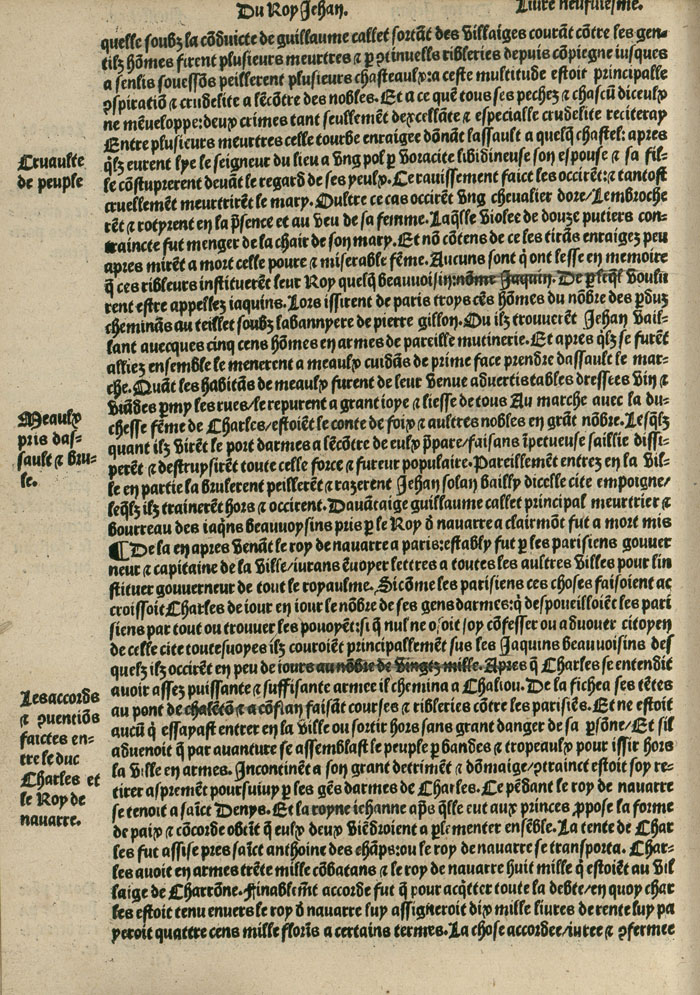 Du Roy Jehan.
Livre neufuiesme.
quelle soubz la cõduicte de guillaume callet sortãt des Villaiges courãt cõtre les gen-
tilz hõmes firent plusieurs meurtres ⁊ ꝑ ꝯtinuelles ribleries depuis cõpiegne iusques
a senlis souessõs peillerent plusieurs chasteaulx: a ceste multitude estoit principalle
ꝯspiratiõ ⁊ crudelite a lẽcõtre des nobles. Et a ce que tous ses pechez ⁊ chascũ diceulx
ne mẽueloppe: deux crimes tant seullemẽt dexcellãte ⁊ especialle crudelite reciteray
Entre plusieurs meurtres celle tourbe enraigee dõnãt lassault a quelq̃ chastel: apres
q̃lz eurent lye le seigneur du lieu a Vng pol ꝑ Voracite libidineuse son espouse ⁊ sa fil-
le cõstuprerent deuãt le regard de ses yeulx. Ce rauissement faict les occirẽt: ⁊ tantost
cruellemẽt meurtrirẽt le mary. Oultre ce cas occirẽt Vng chevalier dore/Lembroche
rẽt ⁊ rotyrent en la p̃sence et au veu de sa femme. Laq̃lle Violee de douze putiers con-
traincte fut menger de la chair de son mary. Et nõ cõtens de ce les tirãs enraigez peu
apres mirẽt a mort celle poure ⁊ miserable fẽme. Aucuns sont q̃ ont lesse en memoire
q̃ ces ribleurs instituerẽt leur Roy quelq̃ beauuoisin: nõme Jaquin. De ꝑ leq̃l Voulu
rent estre appellez iaquins. Lors issirent de paris troys cẽs hõmes du nõbre des ꝑduz
cheminãs au teillet soubz la bannyere de pierre gillon. Ou ilz trouuerẽt Jehan Vail-
lant auecques cinq cens hõmes en armes de pareille mutinerie. Et apres q̃lz se furẽt
alliez ensemble le menerent a meaulx cuidãs de prime face prendre dassault le mar-
che. Quãt les habitãs de meaulx furent de leur Venue aduertis tables dressees Vin ⁊
Viãdes ꝑmy les rues/le repurent a grant ioye ⁊ liesse de tous Au marche auec la du-
chesse fẽme de Charles/estoiẽt le conte de foix ⁊ aultres nobles en grãt nõbre. Lesq̃lz
quant ilz Virẽt le port darmes a lẽcõtre de eulx p̃pare/faisans ĩpetueuse saillie dissi-
perẽt ⁊ destruysirẽt toute celle force ⁊ fureur populaire. Pareillemẽt entrez en la Vil-
le en partie la brulerent peillerẽt ⁊ razerent Jehan solan bailly dicelle cite empoigne/
leq̃lz ilz trainerẽt hors ⁊ occirent. Dauãtaige guillaume callet principal meurtrier ⁊
bourreau des iaq̃ns beauuoysins pris ꝑ le Roy d̃ nauarre a clairmõt fut a mort mis
¶De la en apres Venãt le roy de nauarre a paris: estably fut ꝑ les parisiens gouuer
neur ⁊ capitaine de la Ville/iurans ẽuoyer lettres a toutes les aultres Villes pour lin
stituer gouuerneur de tout le royaulme. Sicõme les parisiens ces choses faisoient ac
croissoit Charles de iour en iour le nõbre de ses gens darmes: q̃ despoueilloiẽt les pari
siens par tout ou trouuer les pouoyẽt: si q̃ nul ne osoit soy cõfesser ou aduouer citoyen
de celle cite toutesuoyes ilz couroiẽt principallemẽt sus les Jaquins beauuoisins des
quelz ilz occirẽt en peu de iours au nõbre de Vingtz mille. Apres q̃ Charles se entendit
auoir assez puissante ⁊ suffisante armee il chemina a Chaliou. De la fichea ses tẽtes
au pont de chalẽtõ ⁊ a cõflan faisãt courses ⁊ ribleries cõtre les parisiẽs. Et ne estoit
aucũ q̃ essayast entrer en la Ville ou sortir hors sans grant danger de sa ꝑsõne/Et sil
aduenoit q̃ par auanture se assemblast le peuple ꝑ bandes ⁊ tropeaulx pour issir hors
la Ville en armes. Incontinẽt a son grant detrimẽt ⁊ dõmaige/ꝯtrainct estoit soy re-
tirer asprement poursuiuy ꝑ les gẽs darmes de Charles. Ce pẽdant le roy de nauarre
se tenoit a saĩct Denys. Et la royne iehanne ap̃s q̃lle eut aux princes ꝓpose la forme
de paix ⁊ cõcorde obtĩt q̃ eulx deux Viẽdroient a ꝑlementer ensẽble. La tente de Char
les fut assise pres saĩct anthoine des chãps: ou le roy de nauarre se transporta. Char-
les auoit en armes trẽte mille cõbatans ⁊ le roy de nauarre huit mille q̃ estoiẽt au Vil
laige de Charrõne. Finablem̃t accorde fut q̃ pour acq̃tter toute la debte/en quoy char
les estoit tenu enuers le roy d̃ nauarre luy assigneroit dix mille liures de rente luy pa
yeroit quattre cens mille florĩs a certains termes. La chose accordee/iuree ⁊ ꝯfermee
Cruaulte
de peuple
Meaulx
pris das-
sault ⁊ bru-
le.
Les accords
⁊ ꝯuentiõs
faictes en-
tre le duc
Charles et
le Roy de
nauarre.